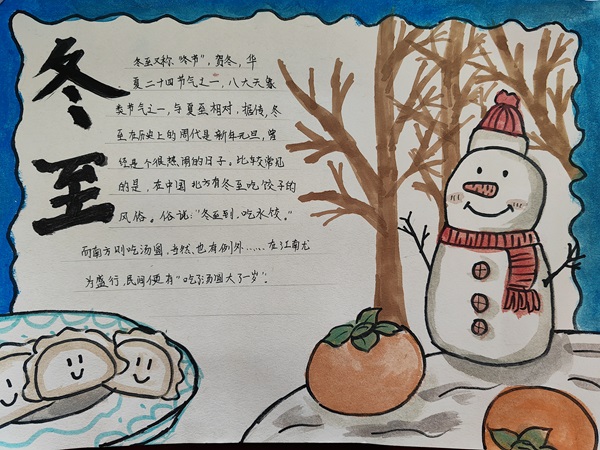 冬至
冬至又称“冬节”，贺冬，华
夏二十四节气之一，八大天象
类节气之一，与夏至相对，据传，冬
至在历史上的周代是新年元旦，曾
经是个很热闹的日子。比较常见
的是，在中国北方有冬至吃饺子的
风俗。俗说：“冬至到，吃水饺。”
而南方则吃汤圆，当然，也有例外……，在江南尤
为盛行，民间便有“吃了汤圆大了一岁”。